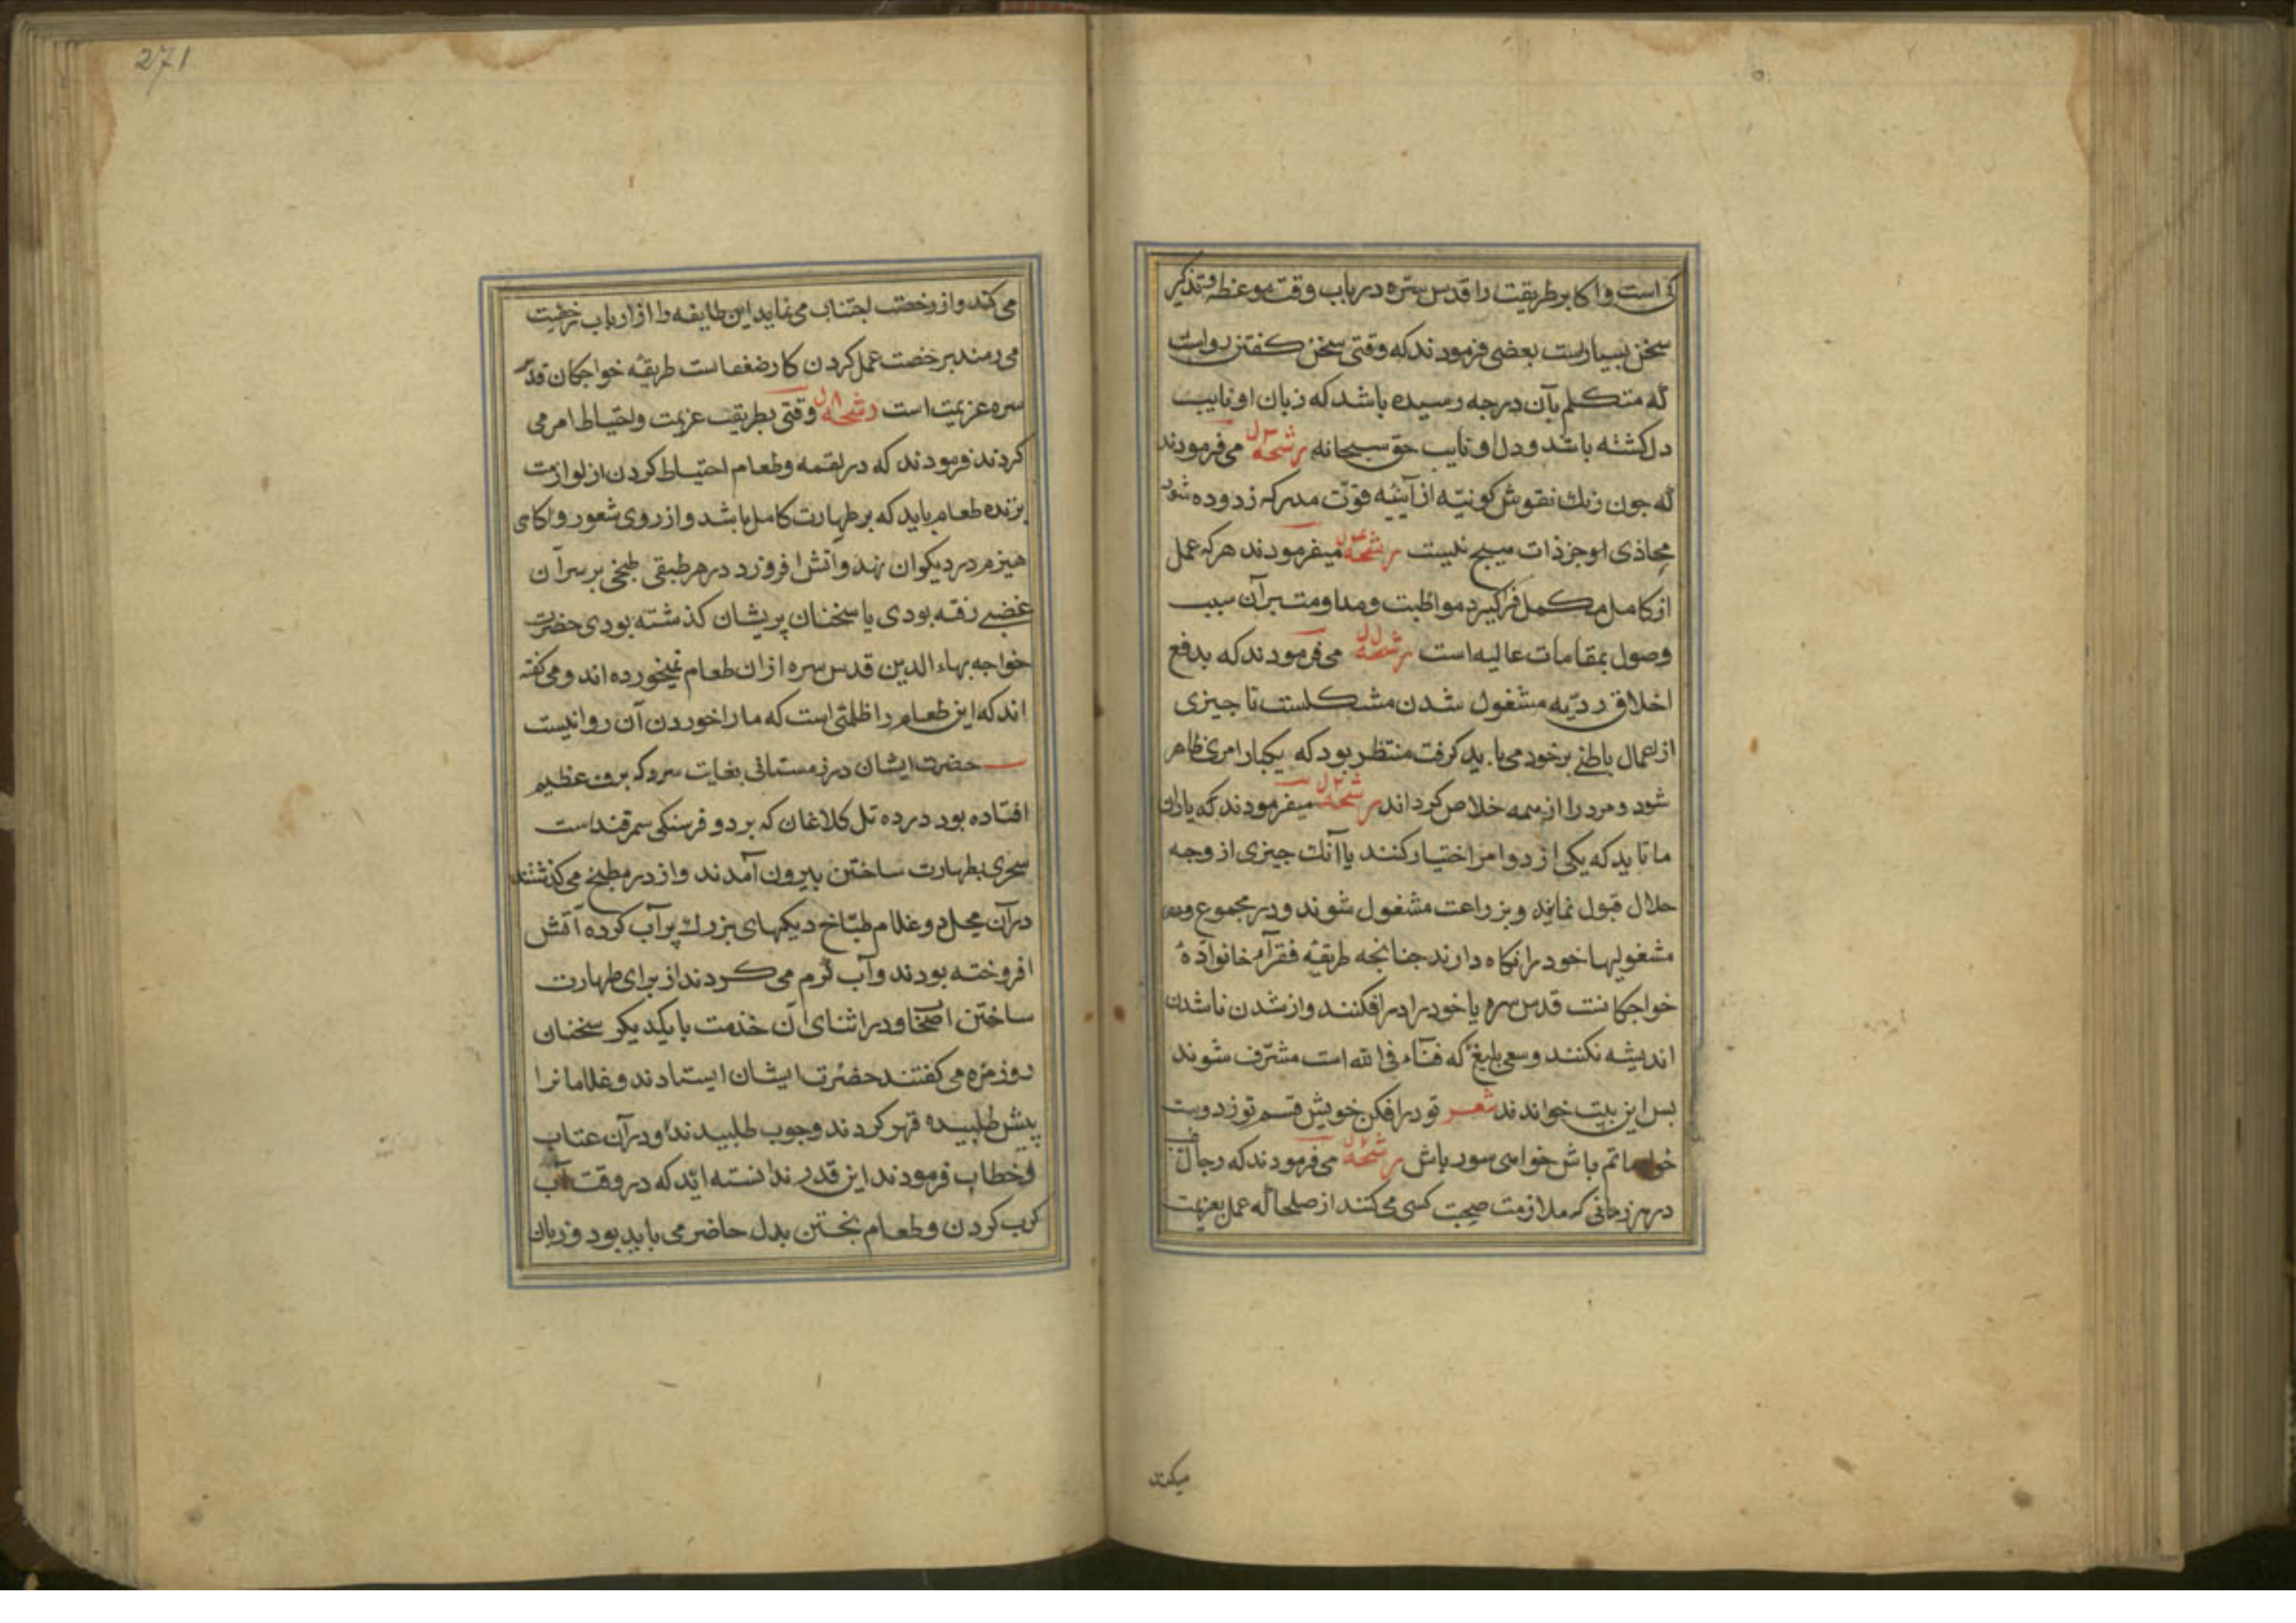 کی است و اکابر طریقت را قدس سره در باب وقت موعظه و تذکیر
سخن بسیار است بعضی فرمودند که وقتی سخن کفتن رواست
که متکلم بآن درجه رسیده باشد که زبان او نایب
دل کشته باشد و دل او نایب حق سبحانه رشحه می فرمودند
که جون زنك نقوش کونیّه از آیینه قوّت مدرکه زدوده شود
محاذی او جز ذات هیج نیست رشحه میفرمودند هر که عمل
از کامل مکمل فراکیرد مواظبت و مداومت بر آن سبب
وصول بمقامات عالیه است رشحه می فرمودند که بدفع
اخلاق ردیّه مشغول شدن مشکلست تا چیزی
از اعمال باطنی برخود می باید کرفت منتظر بود که یکبار امری ظاهر
شود و مرد را از همه خلاص کرداند رشحه میفرمودند که یاران
ما تا ید که یکی از دو امر اختیار کنند یا آنك جیزی از وجه
حلال قبول نمایند و بزراعت مشغول شوند و در مجموع
مشغولیها خود را نکاه دارند جنانجه طریقهٔ فقرآء خانوادهٔ
خواجکانست قدس سره یا خود را در افکنند و از شدن ناشدن
اندیشه نکنند و سعی بلیغ که فنآء فی الله است مشرّف شوند
بس این بیت خواندند شعر تو در افکن خویش قسم تو ز دوست
خواه ماتم باش خواهی سور باش رشحه می فرمودند که رجال
در هر زمانی که ملازمت صحبت کسی می کنند از صلحا که عمل بعزیمت
میکند
271
می کند و از رخصت اجتناب می نماید این طایفه را از ارباب رخصت
می رمند بر خصت عمل کردن کار ضعفاست طریقهٔ خواجکان قدس
سره عزیمت است رشحه وقتی بطریقت عزیمت و احتیاط امر می
کردند فرمودند که در لقمه و طعام احتیاط کردن از لوازمست
پزنده طعام باید که بر طهارت کامل باشد و از روی شعور و اکاهی
هیزم در دیکدان نهد و آتش افروزد در هر طبقی طبخی بر سر آن
غضبی رفته بودی یا سخنان پریشان کذشته بودی حضرت
خواجه بهاء الدین قدس سره از ان طعام نمیخورده اند و می کفته
اند که این طعام را ظلمتی است که ما را خوردن آن روا نیست
حضرت ایشان در زمستانی بغایت سرد که برف عظیم
افتاده بود در ده تل کلاغان که بر دو فرسنکی سمرقند است
سحری بطهارت ساختن بیرون آمدند و از در مطبخ می کذشتند
در آن محل دو غلام طبّاخ دیکهای بزرك پر آب کرده آتش
افروخته بودند و آب کرم می کردند از برای طهارت
ساختن اصحاب و در اثنای آن خدمت با یکدیکر سخنان
روزمرّه می کفتند حضرت ایشان ایستادند و غلامانرا
پیش طلبیده قهر کردند و جوب طلبیدند و در آن عتاب
و خطاب فرمودند این قدر ندانسته اید که در وقت آب
کرم کردن و طعام بختن بدل حاضر می باید بود و زبان